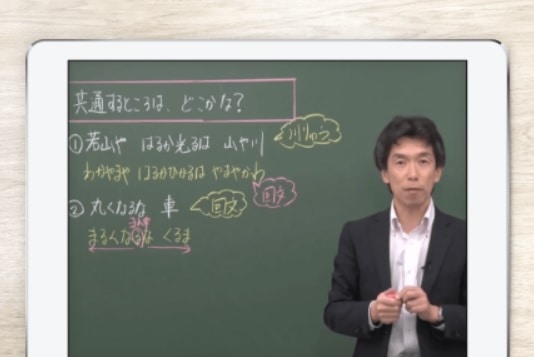 共通するところは、どこかな?
① 若山や はるか光るは 山や川 川りゅう
わかやまや はるかひかるは やまやかわ 回文
② 丸くなるな 車 回文
まん中
まるくなるな くるま